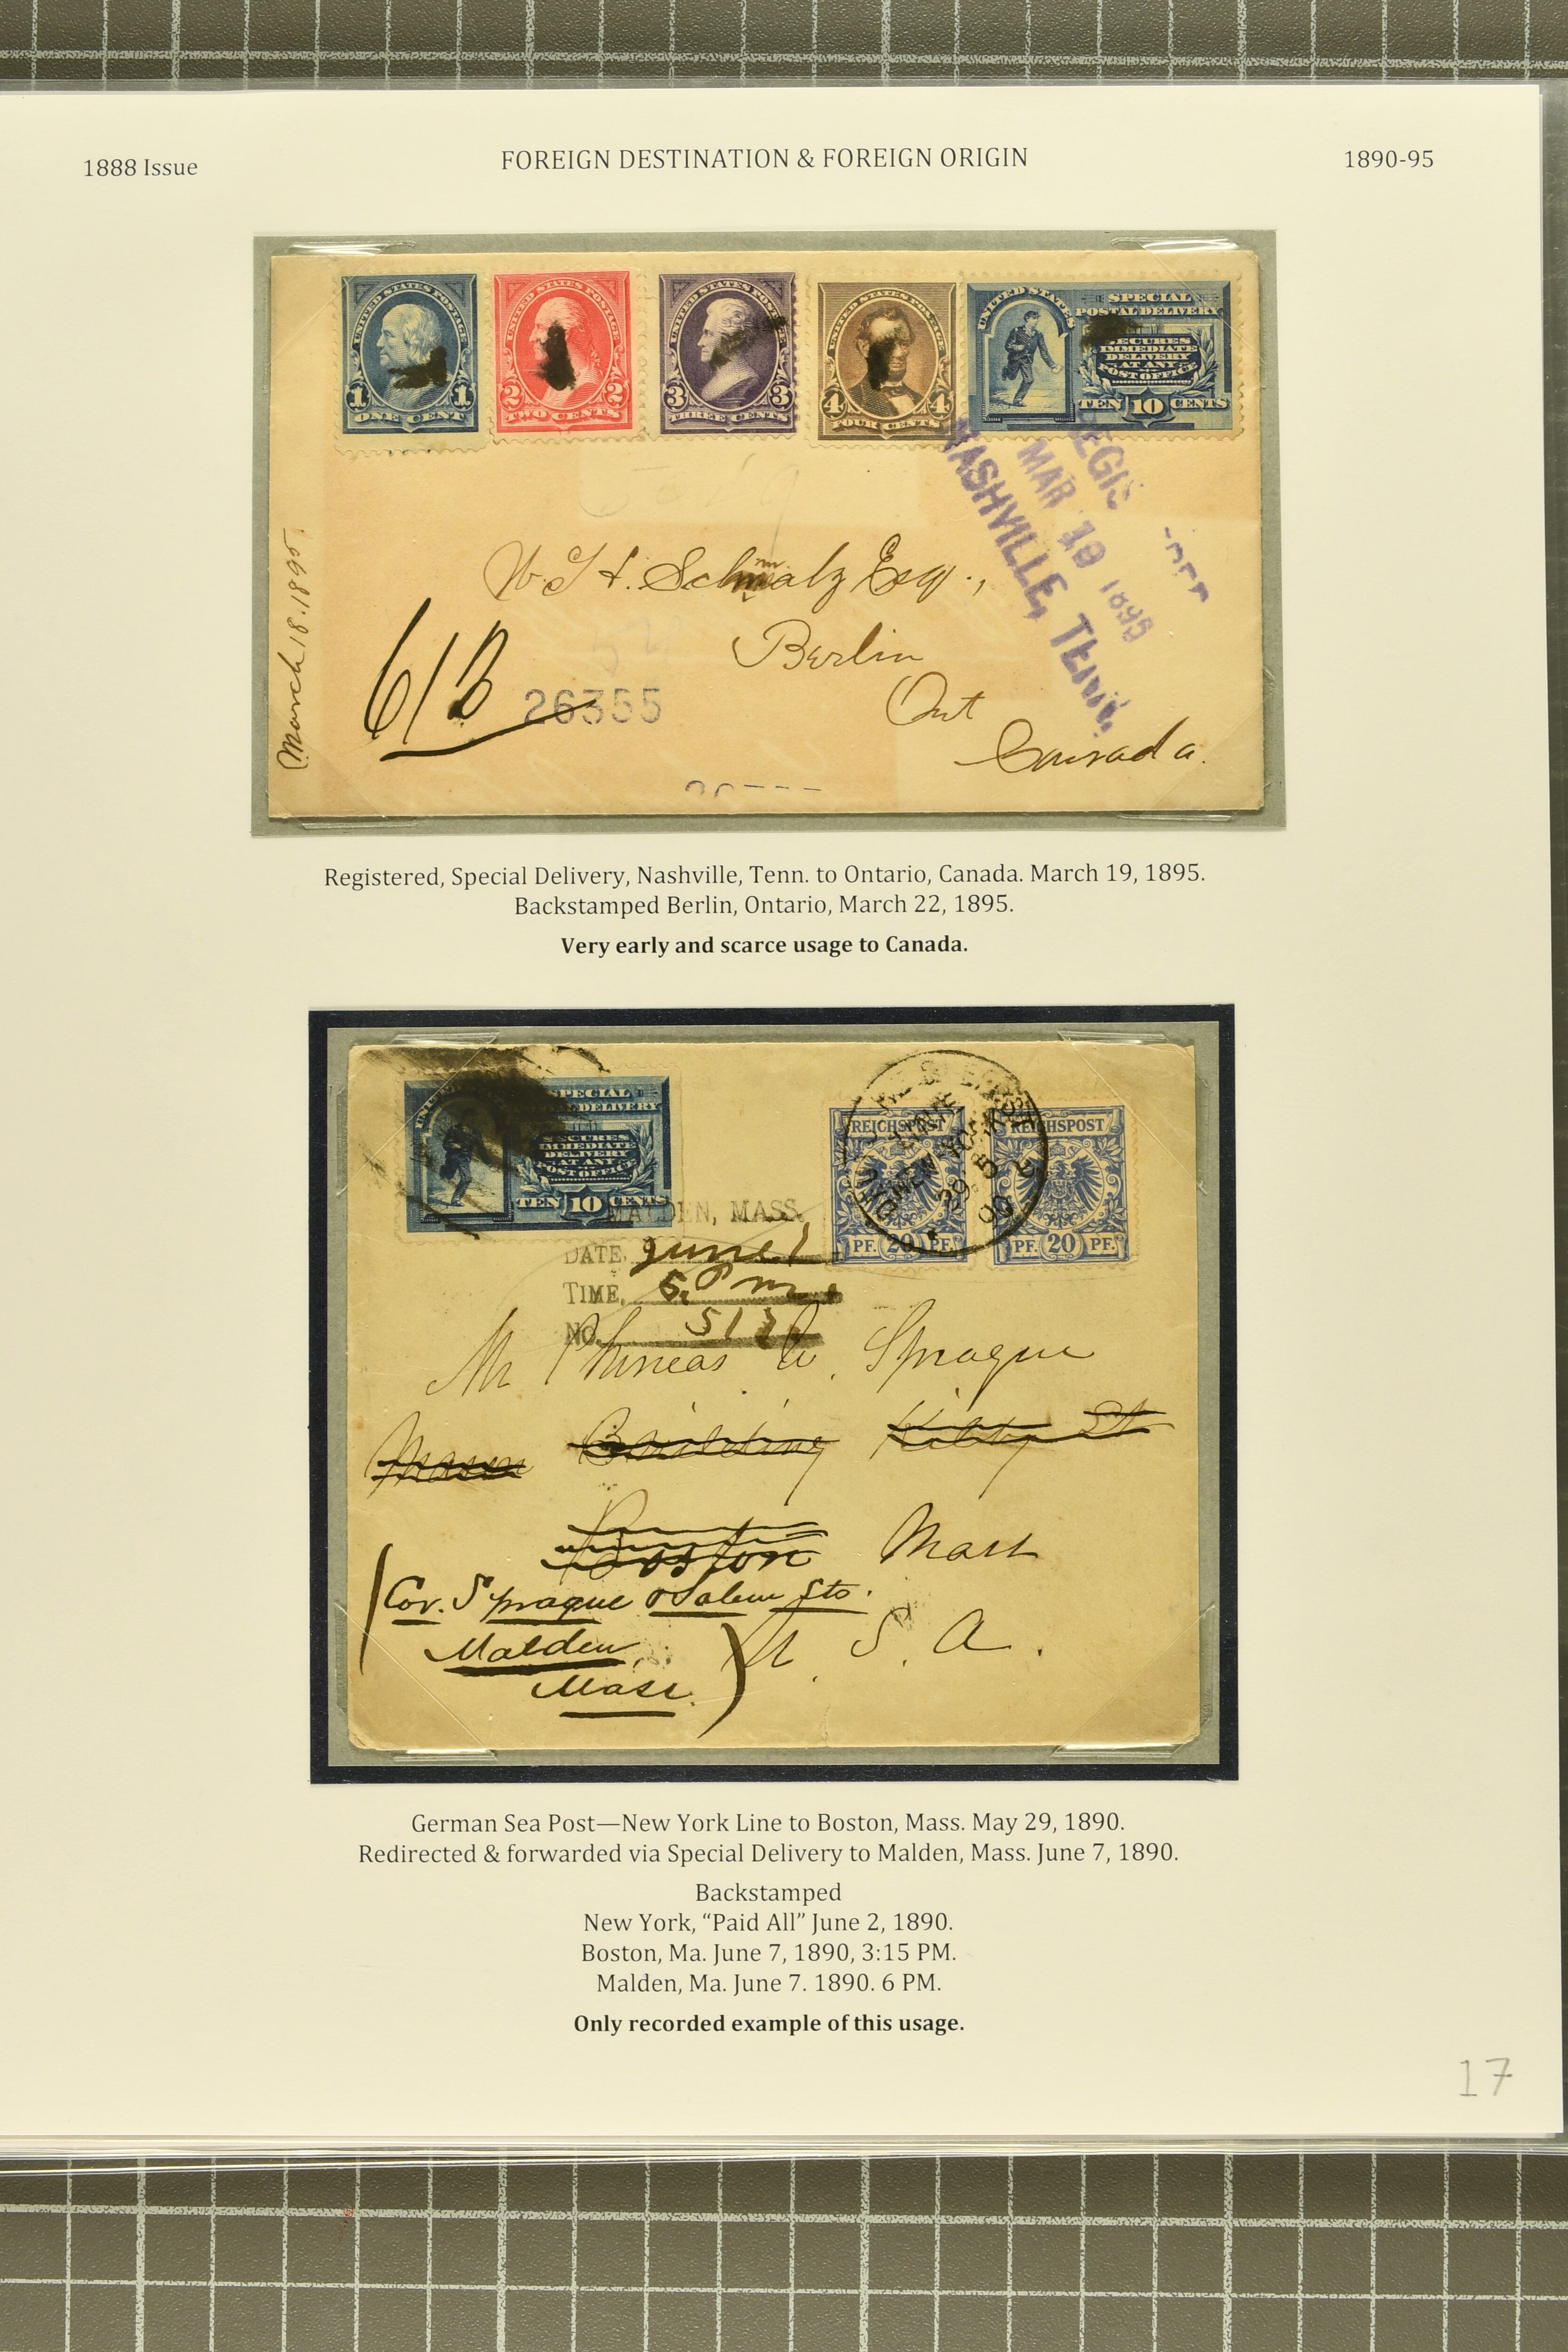 1888 Issue
FOREIGN DESTINATION & FOREIGN ORIGIN
1890-95
UNITED STATES POSTAGE
1 1
ONE CENT
UNITED STATES POSTAGE
2 2
TWO CENTS
UNITED STATES POSTAGE
3 3
THREE CENTS
UNITED STATES POSTAGE
4 4
FOUR CENTS
UNITED STATES
SPECIAL
POSTAL DELIVERY
SECURES
IMMEDIATE
DELIVERY
AT ANY
POST OFFICE
TEN 10 CENTS
MAR 19 1895
NASHVILLE, TENN.
March 18. 1895.
Schmalz Esq.,
Berlin
Ont
Canada.
613
26355
Registered, Special Delivery, Nashville, Tenn. to Ontario, Canada. March 19, 1895.
Backstamped Berlin, Ontario, March 22, 1895.
Very early and scarce usage to Canada.
SPECIAL
DELIVERY
SECURES
IMMEDIATE
DELIVERY
AT ANY
POST OFFICE
TEN 10 CENTS
REICHSPOST
PF. 20 PF.
REICHSPOST
PF. 20 PF.
NEW YORK
29 5
90
MALDEN, MASS.
DATE, June 7
TIME, 5. Pm
NO. 513
Mr Phineas W. Sprague
Mason Building Kilby St
Boston Mass
U. S. A.
(Cor. Sprague & Salem Sts.
Malden,
Mass.)
German Sea Post—New York Line to Boston, Mass. May 29, 1890.
Redirected & forwarded via Special Delivery to Malden, Mass. June 7, 1890.
Backstamped
New York, “Paid All” June 2, 1890.
Boston, Ma. June 7, 1890, 3:15 PM.
Malden, Ma. June 7. 1890. 6 PM.
Only recorded example of this usage.
17